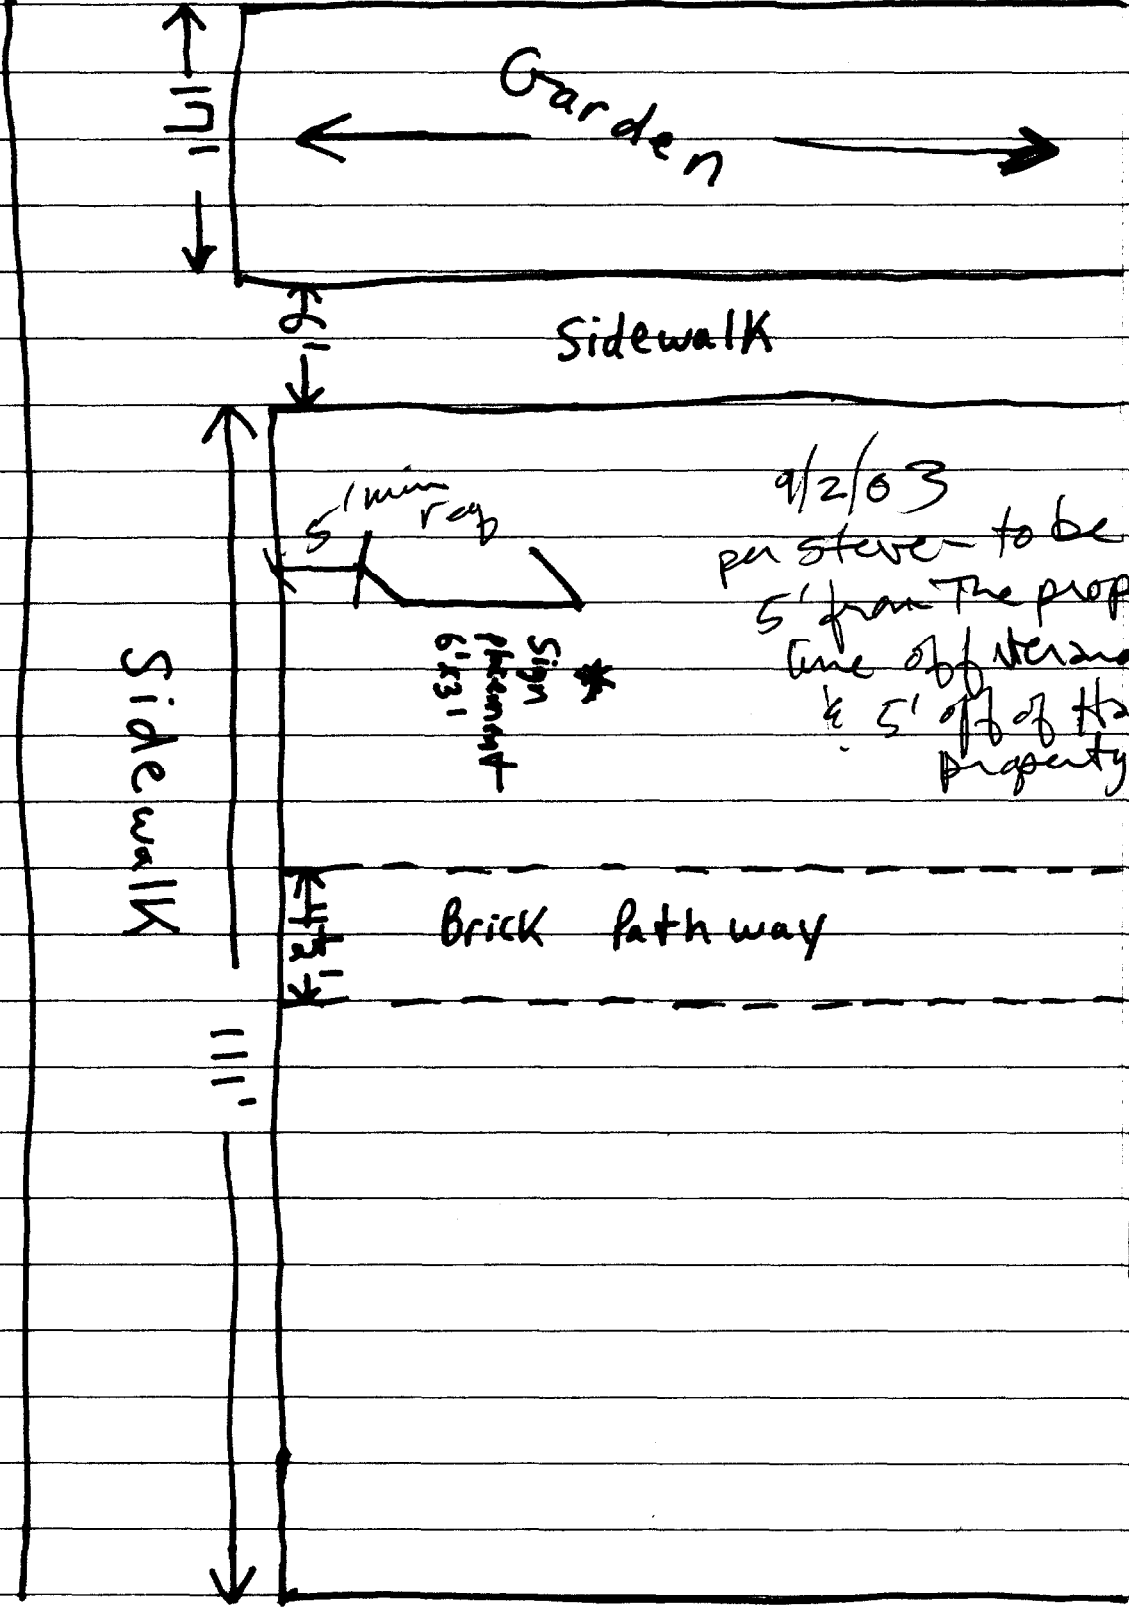 Garden
6'
Sidewalk
5' min
req
9/2/03
per Steven to be
5' from The prop
line off
& 5' off of Ha
property
* Sign
placement
6'x3'
Sidewalk
4½'
Brick Pathway
111'